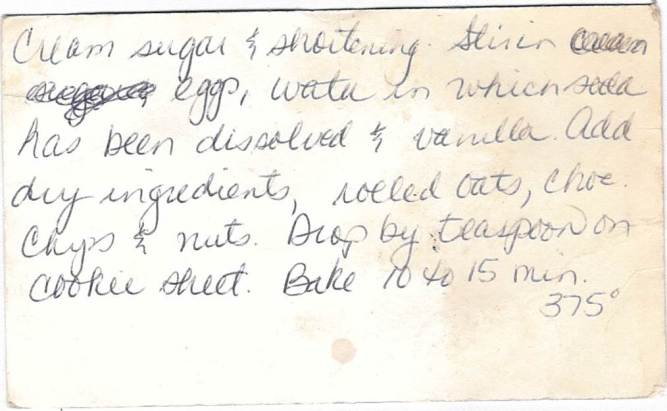 Cream sugar & shortening. Stir in
eggs, water in which soda
has been dissolved & vanilla. Add
dry ingredients, rolled oats, choc.
chips & nuts. Drop by teaspoon on
cookie sheet. Bake 10 to 15 min.
375°